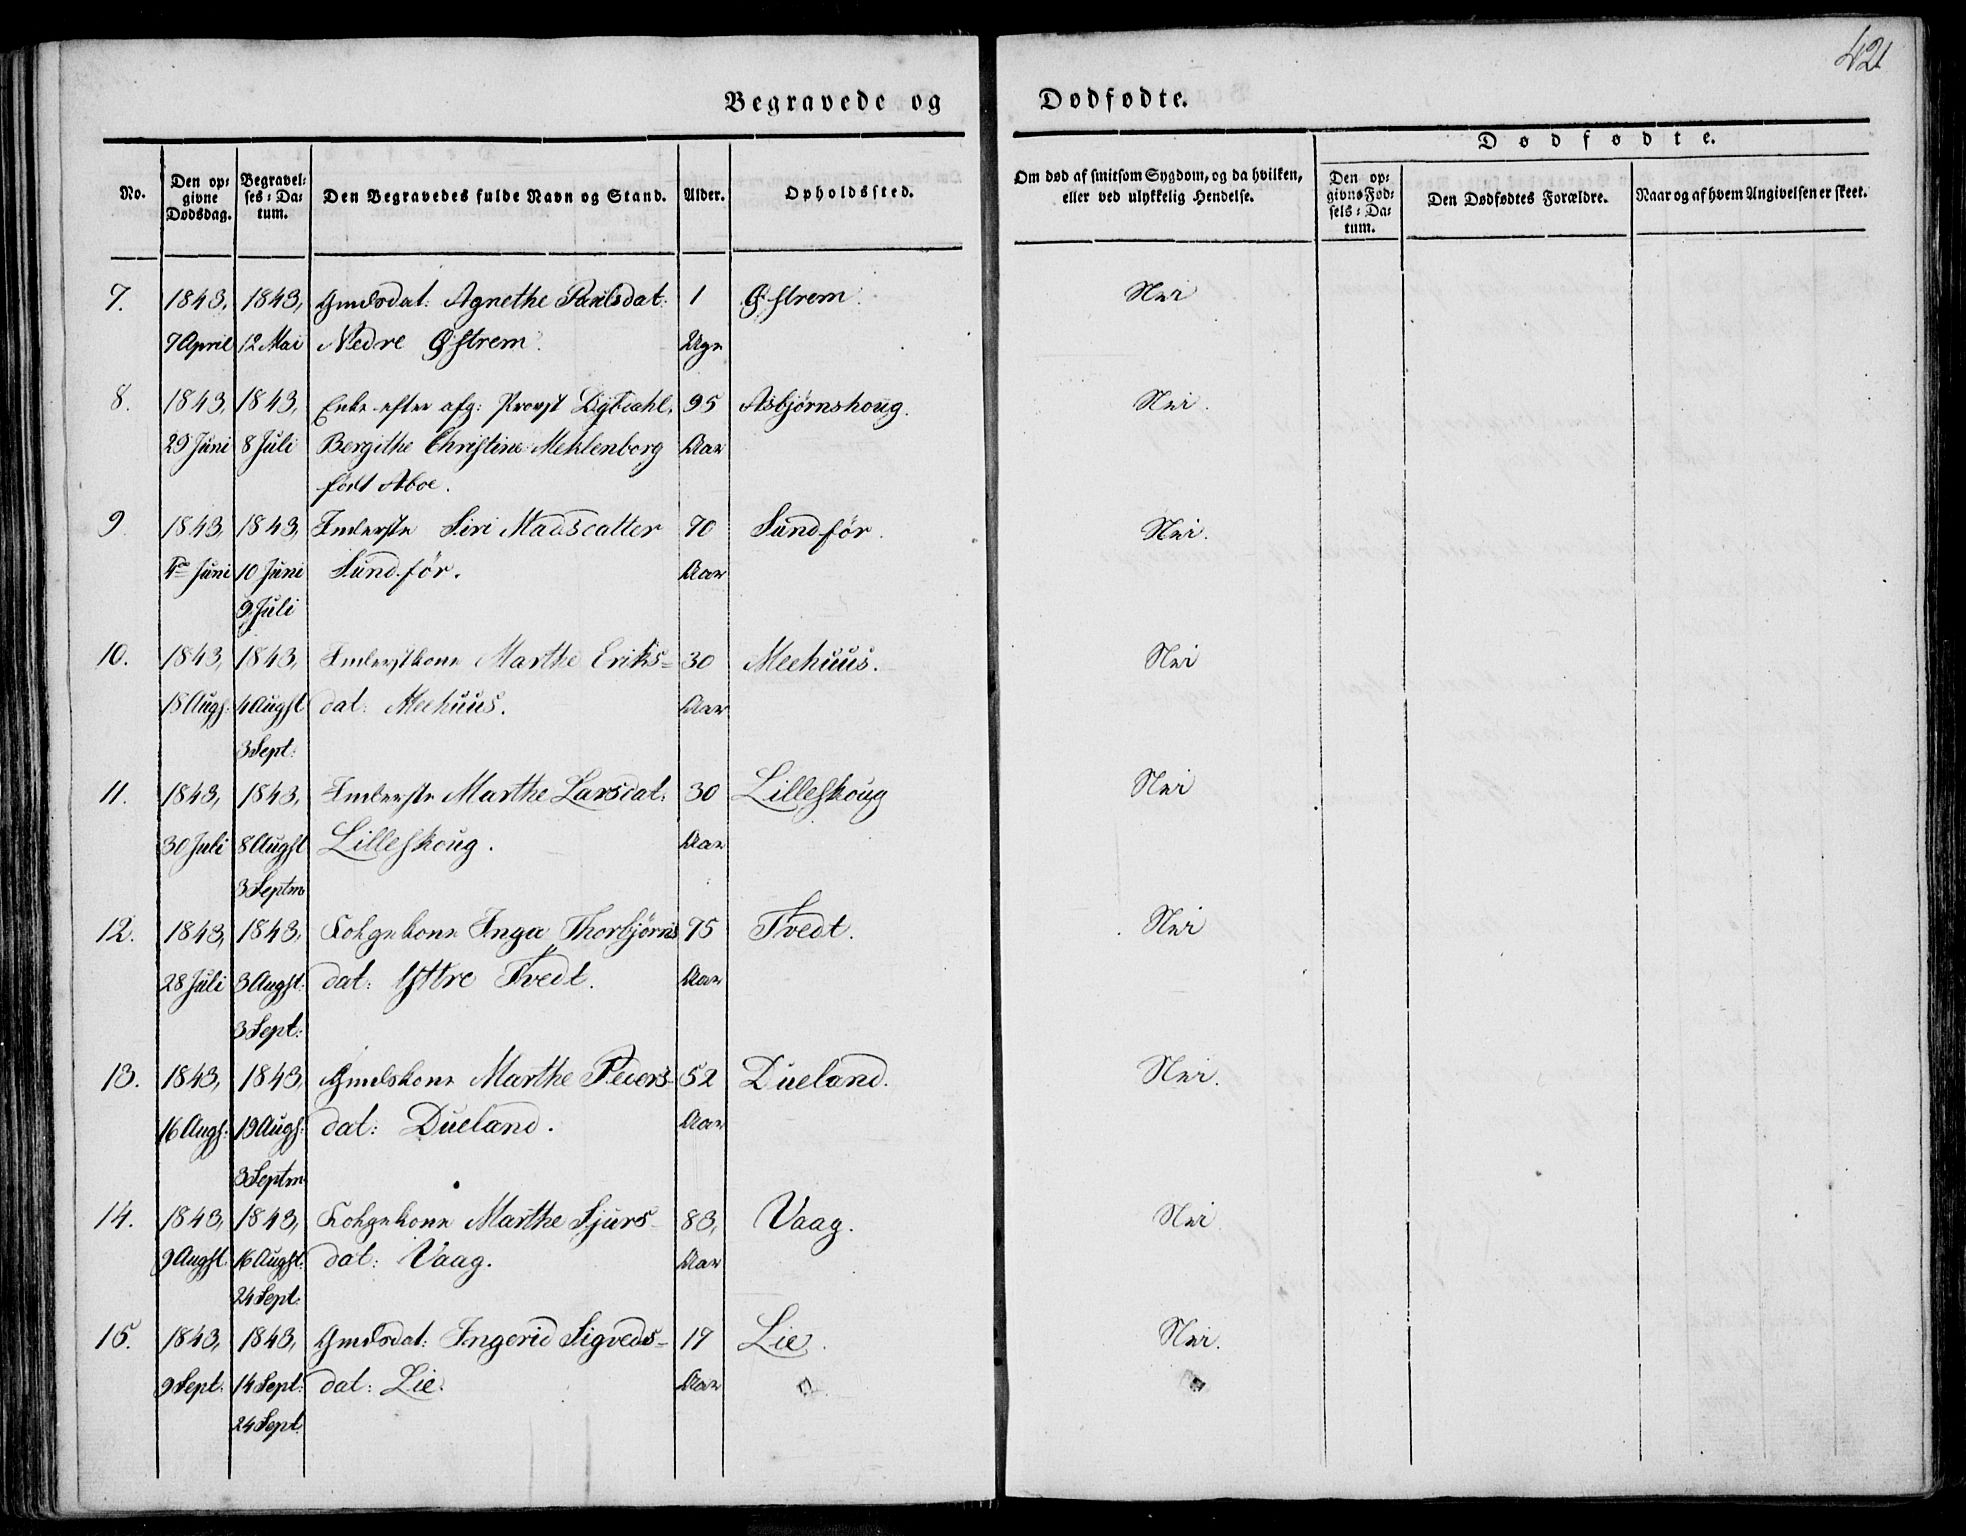 42
Begravede og Dødfødte.
Dødfødte.
No.
Den op:
givne
Dødsdag.
Begravel:
ses: Da:
tum.
Den Begravedes fulde Navn og Stand.
Alder.
Opholdssted.
Om død af smitsom Sygdom, og da hvilken,
eller ved ulykkelig Hendelse.
Den op:
givne Fød:
sels: Da:
tum.
Den Dødfødtes Forældre.
Naar og af hvem Angivelsen er skeet.
7. 1843, 1843, Gmdsdat: Agnethe Paulsdat: 1 Østrem. Nei
7 April 12 Mai Nedre Østrem. Uge
8. 1843, 1843, Enke efter afg: Provst Dybdahl, 95 Asbjørnshoug. Nei.
29 Juni 8 Juli Bergithe Christine Meklenborg Aar
født Aboe.
9. 1843, 1843, Inderste Siri Madsdatter 70 Sundfør. Nei.
4de Juni 10 Juni Sundfør. Aar
9 Juli
10. 1843, 1843, Inderstkone Marthe Eriks- 30 Meehuus. Nei
4 Augst dat: Meehuus. Aar
3 Sept:
11. 1843, 1843, Inderste Marthe Larsdat: 30 Lilleskoug Nei
30 Juli 8 Augst Lilleskoug. Aar
3 Septm
12. 1843, 1843, Folgekone Inga Thorbjørns 75 Tvedt. Nei
28 Juli 3 Augst: dat: Yttre Tvedt. Aar
3 Sept:
13. 1843, 1843, Gmdskone Marthe Peders- 52 Dueland. Nei.
16 Augs: 19 Augs: dat: Dueland. Aar
3 Septm
14. 1843, 1843, Folgekone Marthe Sjurs- 83, Vaag. Nei.
9 Augst. 16 Augst. dat: Vaag. Aar
24 Sept:
15. 1843, 1843, Gmdsdat: Ingerid Sigveds- 17 Lie. Nei.
9 Sept. 14 Sept: dat: Lie. Aar
24 Sept.